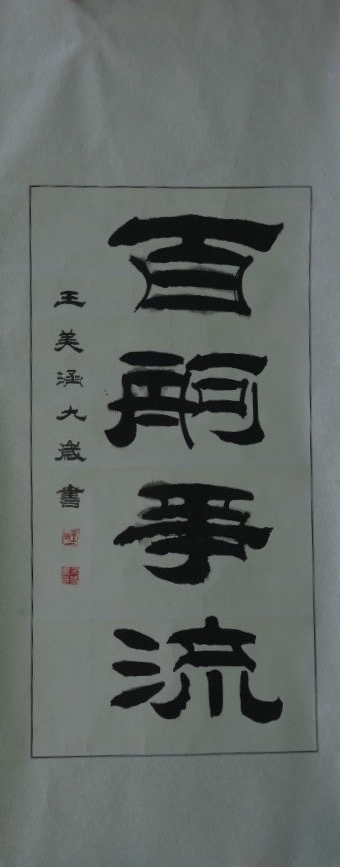 百舸争流
王美涵九歲書